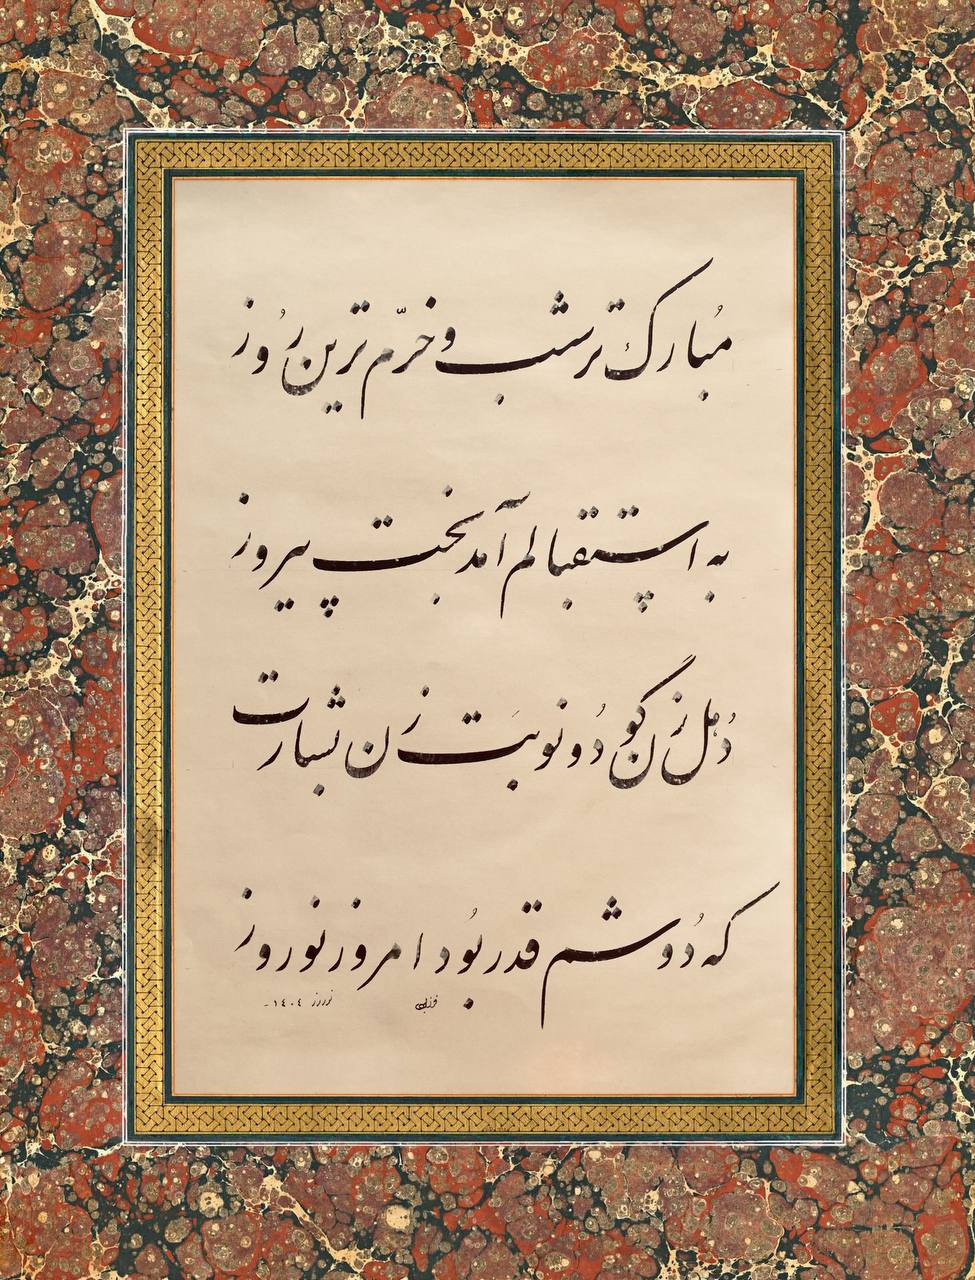 مُبارک‌تر شب و خرّم‌ترین رُوز
به استقبالم آمد بخت پیروز
دُهل‌زن گو دُو نوبت زن بشارت
که دُوشم قدر بُود امروز نوروز
نوروز ۱۴۰۴